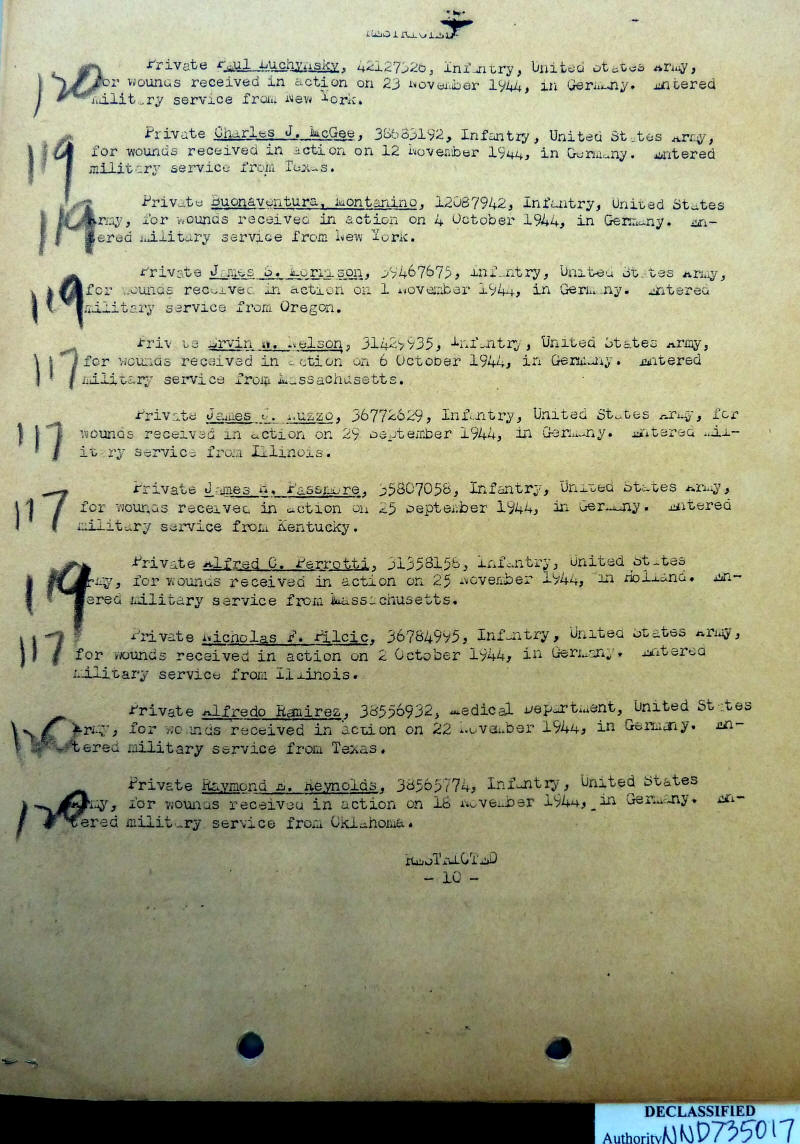 RESTRICTED
120
Private Paul Duchynsky, 42127326, Infantry, United States Army,
for wounds received in action on 23 November 1944, in Germany. Entered
military service from New York.
119
Private Charles J. McGee, 38683192, Infantry, United States Army,
for wounds received in action on 12 November 1944, in Germany. Entered
military service from Texas.
119
Private Buonaventura, Montanino, 12087942, Infantry, United States
Army, for wounds received in action on 4 October 1944, in Germany. En-
tered military service from New York.
119
Private James S. Morrison, 39467675, Infantry, United States Army,
for wounds received in action on 1 November 1944, in Germany. Entered
military service from Oregon.
117
Private Ervin Nelson, 31429935, Infantry, United States Army,
for wounds received in action on 6 October 1944, in Germany. Entered
military service from Massachusetts.
117
Private James Nuzzo, 36772629, Infantry, United States Army, for
wounds received in action on 29 September 1944, in Germany. Entered mil-
itary service from Illinois.
117
Private James Passmore, 35807058, Infantry, United States Army,
for wounds received in action on 25 September 1944, in Germany. Entered
military service from Kentucky.
119
Private Alfred G. Perrotti, 31358156, Infantry, United States
Army, for wounds received in action on 25 November 1944, in Holland. En-
tered military service from Massachusetts.
117
Private Nicholas F. Pilcic, 36784995, Infantry, United States Army,
for wounds received in action on 2 October 1944, in Germany. Entered
military service from Illinois.
120
Private Alfredo Ramirez, 38556932, Medical Department, United States
Army, for wounds received in action on 22 November 1944, in Germany. En-
tered military service from Texas.
120
Private Raymond Reynolds, 38565774, Infantry, United States
Army, for wounds received in action on 18 November 1944, in Germany. En-
tered military service from Oklahoma.
RESTRICTED
- 10 -
DECLASSIFIED
Authority NND735017